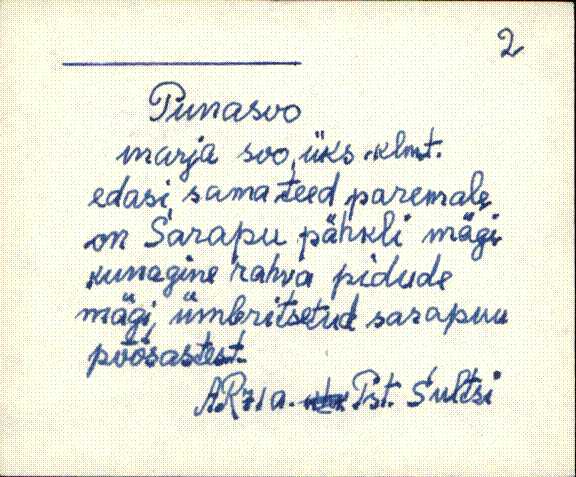 2
Punasoo
marja soo, üks klmt.
edasi sama teed paremale
on Sarapu pähkli mägi
kunagine rahva pidude
mägi, ümbritsetud sarapuu
põõsastest.
A.R. 71a. Pst. Sultsi